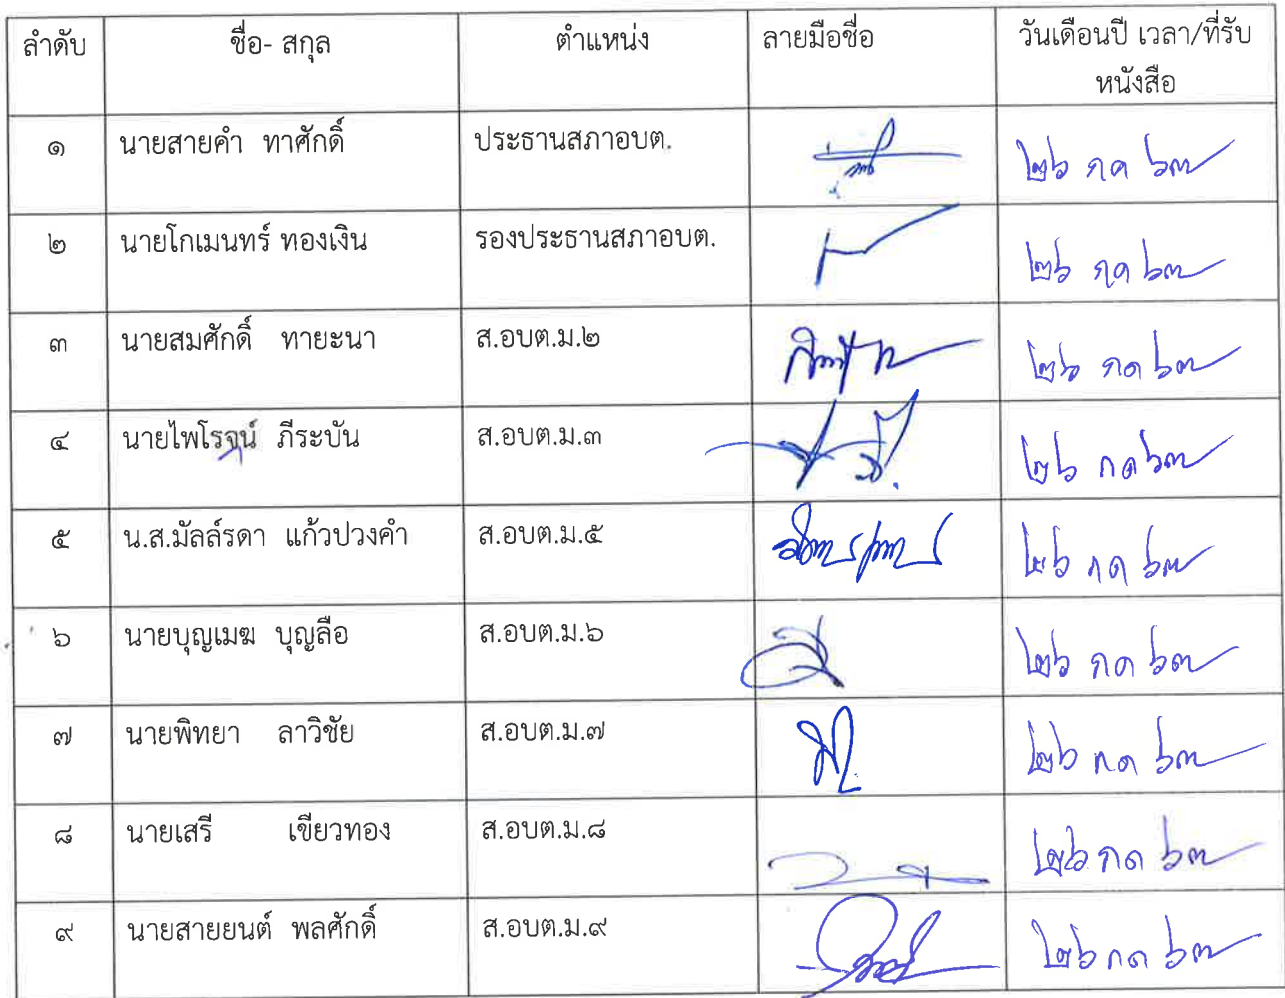 ลำดับ ชื่อ- สกุล ตำแหน่ง ลายมือชื่อ วันเดือนปี เวลา/ที่รับ
หนังสือ
๑ นายสายคำ ทาศักดิ์ ประธานสภาอบต. ๒๖ กค ๖๓
๒ นายโกเมนทร์ ทองเงิน รองประธานสภาอบต. ๒๖ กค ๖๓
๓ นายสมศักดิ์ ทายะนา ส.อบต.ม.๒ ๒๖ กค ๖๓
๔ นายไพโรจน์ ภีระบัน ส.อบต.ม.๓ ๒๖ กค ๖๓
๕ น.ส.มัลล์รดา แก้วปวงคำ ส.อบต.ม.๕ ๒๖ กค ๖๓
๖ นายบุญเมฆ บุญลือ ส.อบต.ม.๖ ๒๖ กค ๖๓
๗ นายพิทยา ลาวิชัย ส.อบต.ม.๗ ๒๖ กค ๖๓
๘ นายเสรี เขียวทอง ส.อบต.ม.๘ ๒๖ กค ๖๓
๙ นายสายยนต์ พลศักดิ์ ส.อบต.ม.๙ ๒๖ กค ๖๓